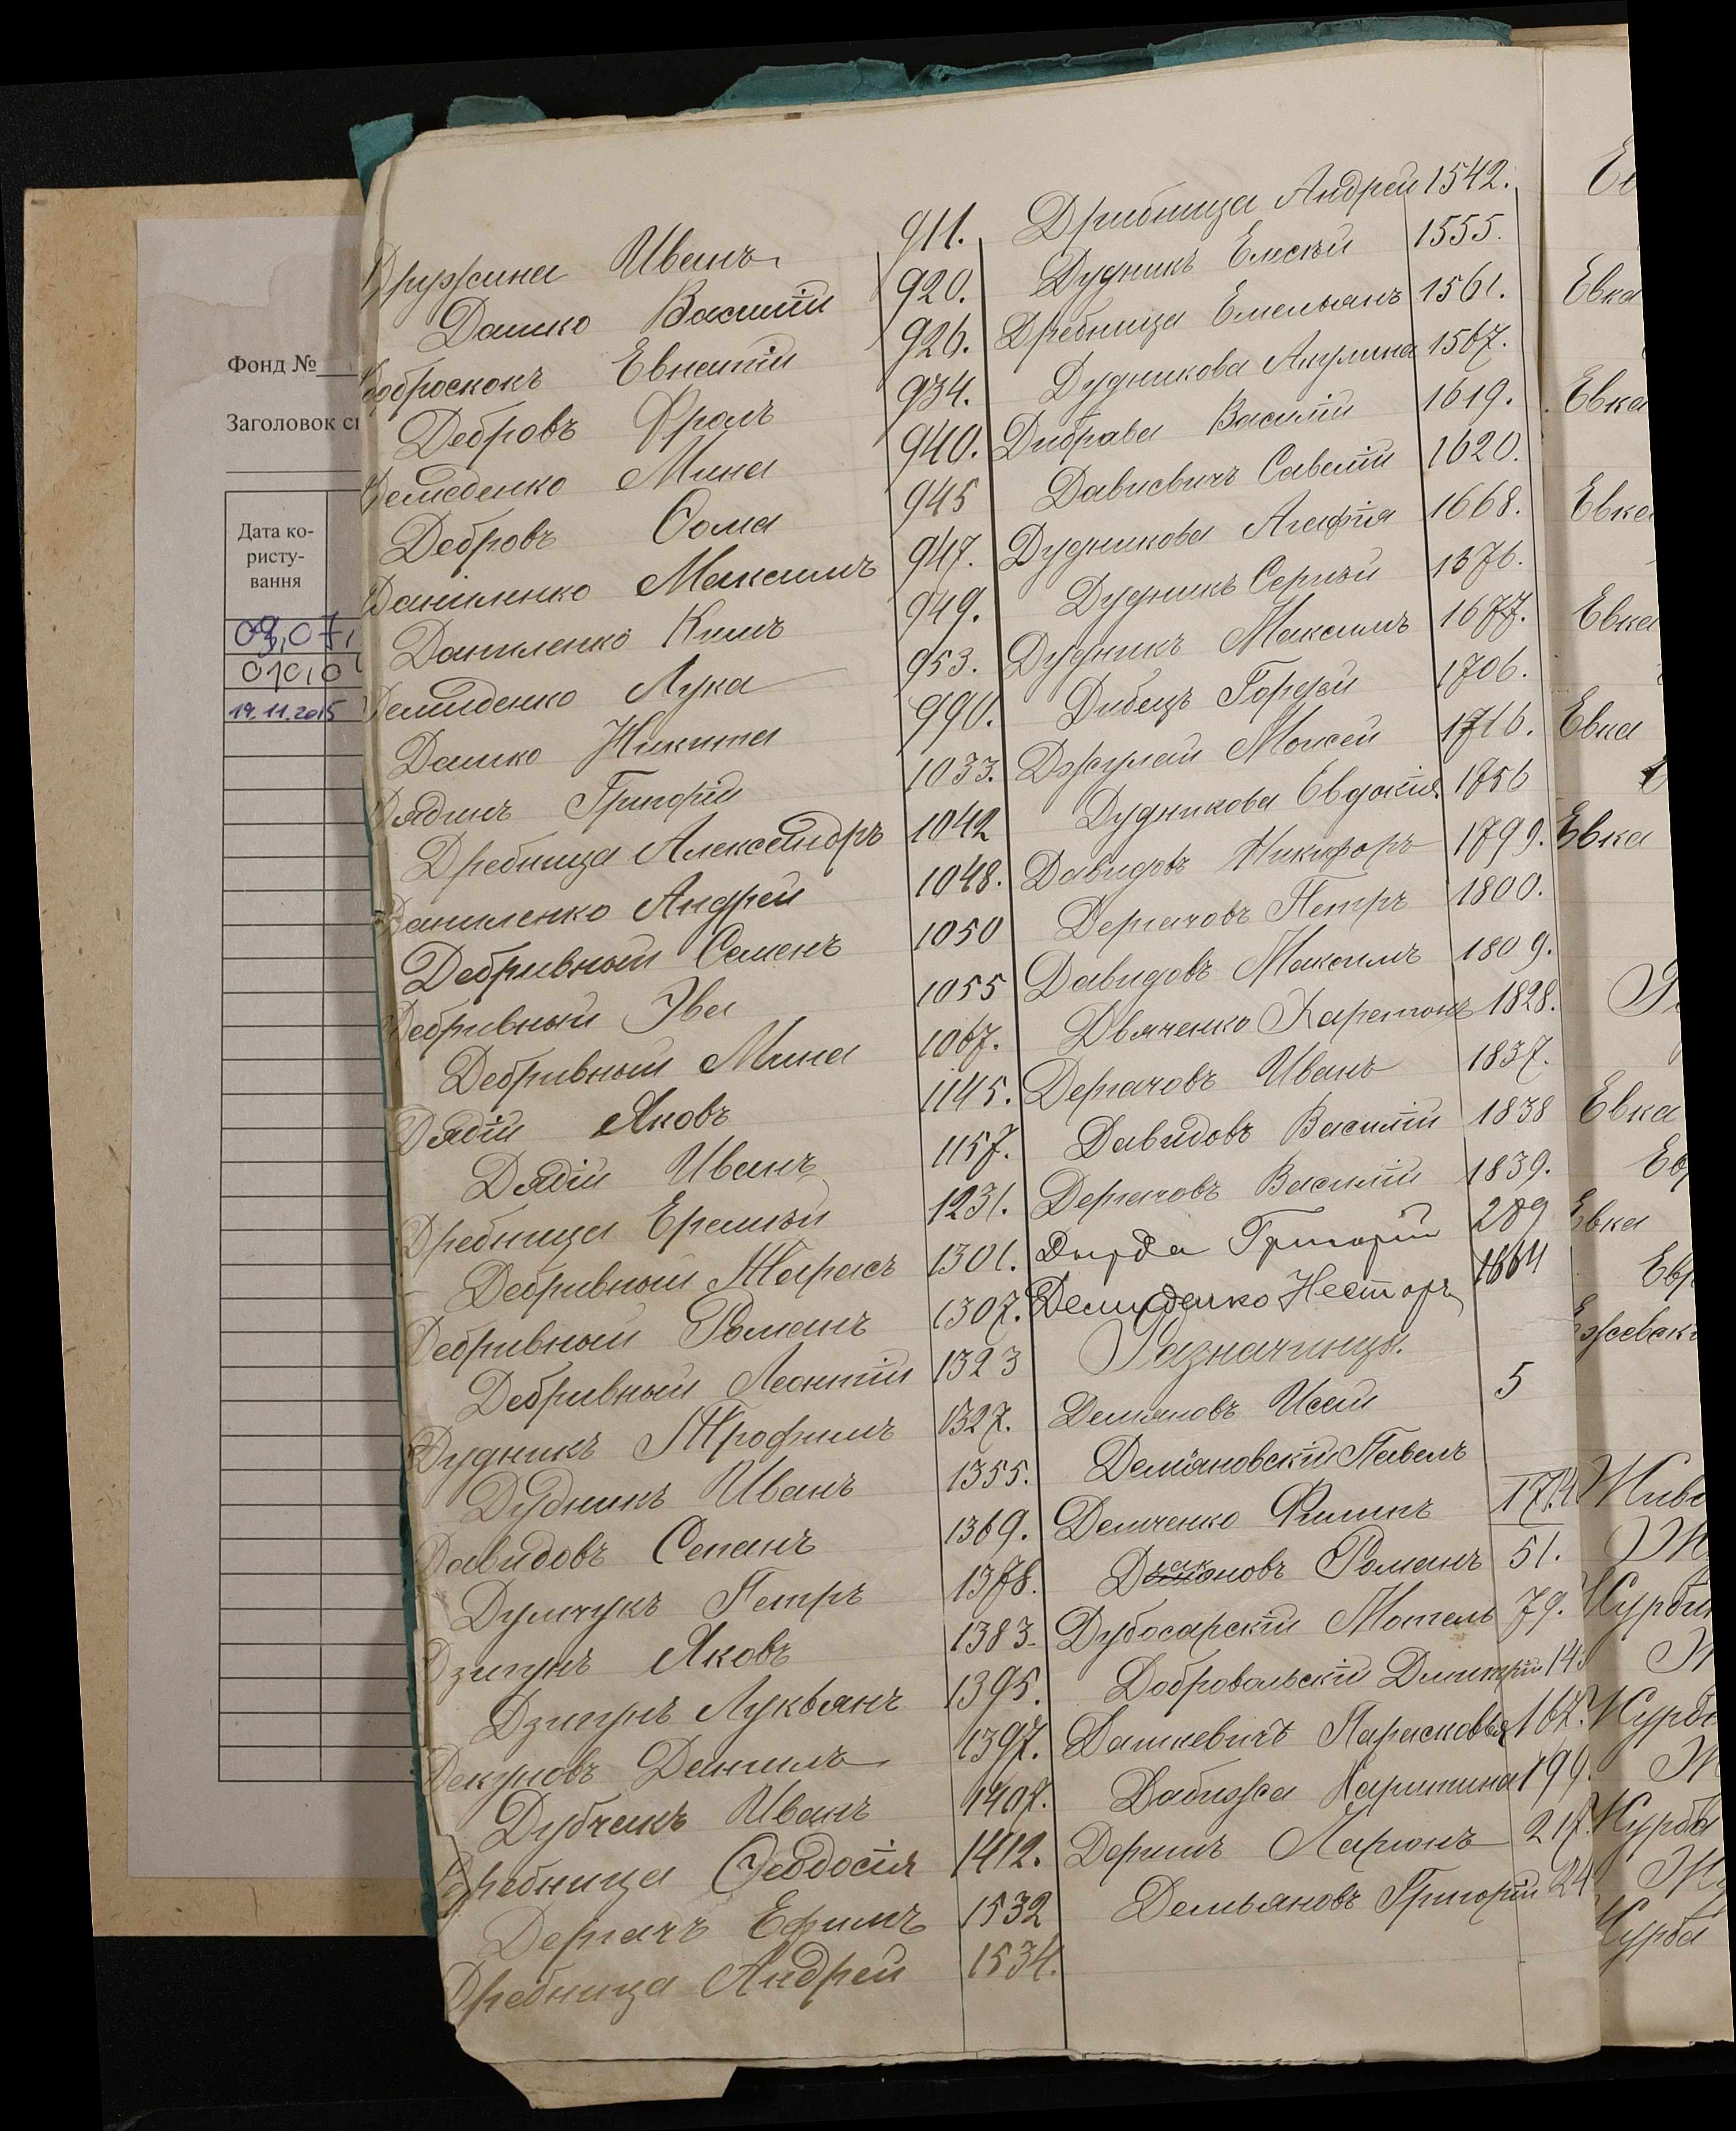 Фонд №
Заголовок
Дата ко-
ристу-
вання
09,07,
010,0
19.11.2015
Дружина Иванъ 911.
Дашко Василiй 920.
Доброскокъ Евнатiй 926.
Дебровъ Фролъ 934.
Демеденко Мина 940.
Дебровъ Ѳома 945
Даниленко Максимъ 947.
Даниленко Климъ 949.
Демиденко Лука 953.
Дашко Никита 990.
Дядинъ Григорiй 1033.
Дребница Александръ 1042
Даниленко Андрей 1048.
Дебривный Семенъ 1050
Дебривный Iва 1055
Дебривный Мина 1067.
Дядiй Яковъ 1145.
Дядiй Иванъ 1157.
Дребница Еремѣй 1231.
Дебривный Тарасъ 1301.
Дебривный Романъ 1307.
Дебривный Леонтiй 1323
Дудникъ Трофимъ 1327.
Дудникъ Иванъ 1355.
Давидовъ Степанъ 1369.
Думчукъ Петръ 1378.
Дзигунъ Яковъ 1383.
Дзигунъ Лукьянъ 1395.
Декуновъ Данилъ 1397.
Дубчакъ Иванъ 1407.
Дребница Ѳеодосiя 1412.
Дергачъ Ефимъ 1532
Дребница Андрей 1534.
Дрибница Андрей 1542.
Дудникъ Елисѣй 1555.
Дребница Емельянъ 1561.
Дудникова Акулина 1567.
Дибрава Василiй 1619.
Дависвичъ Савелiй 1620.
Дудникова Агафiя 1668.
Дудникъ Сергѣй 1676.
Дудникъ Максимъ 1677.
Дибецъ Гордѣй 1706.
Джулай Моисей 1716.
Дудникова Евдокiя 1756
Давидовъ Никифоръ 1799.
Дергачовъ Петръ 1800.
Давидовъ Максимъ 1809.
Двяченко Харетонъ 1828.
Дергачовъ Иванъ 1837.
Давидовъ Василiй 1838
Дергачовъ Василiй 1839.
Дырда Григорiй 289
Демиденко Несторъ 1664
Разначинцы.
Демяновъ Исай 5
Демiановскiй Павелъ
Демченко Филипъ 17/4
Дьяконовъ Романъ 51.
Дубосарскiй Мотель 79.
Добровольскiй Дмитрiй 14
Дашкевичъ Парасковья 167.
Дабижа Харитина 199.
Дериш Ларiонъ 217.
Демьяновъ Григорiй 24
Евка
Евка
Евка
Евка
Евка
Евка
Евка
Евка